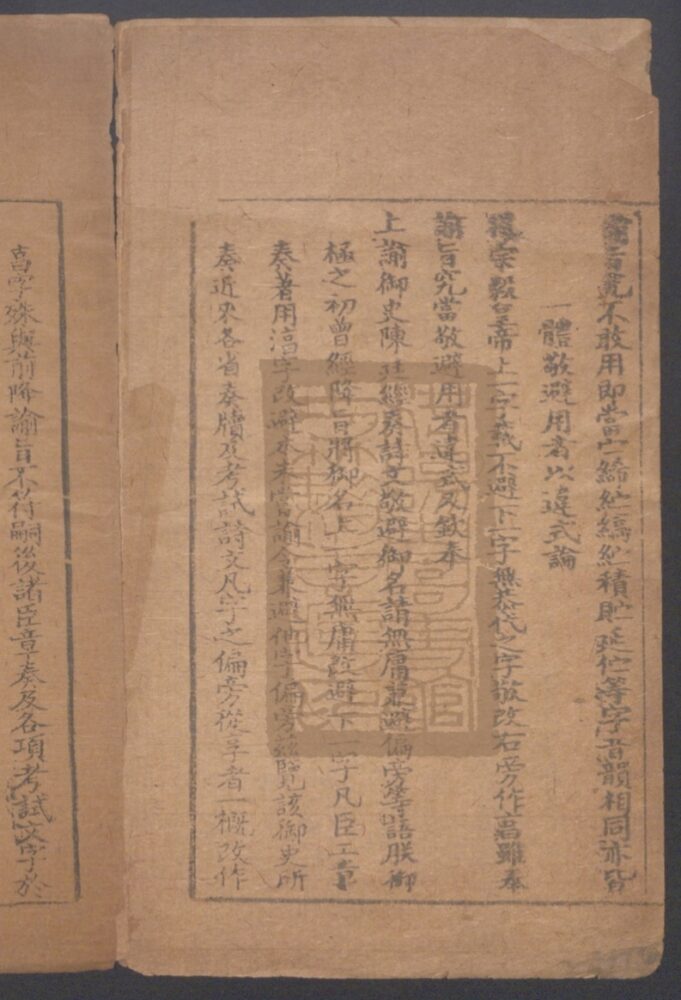 諭旨究不敢用即當宁締紵縞紵積貯延佇等字音韻相同亦皆
一體敬避用者以違式論
穆宗毅皇帝上一字義不避下一字無恭代之字敬改右旁作 雖奉
諭旨究當敬避用者違式又欽奉
上諭御史陳廷經奏詩文敬避御名請無庸兼避偏旁等語朕御
極之初曾經降旨將御名上一字無庸改避下一字凡臣工章
奏著用湻字改避亦未嘗諭令兼避他字偏旁茲覽該御史所
奏近來各省奏牘及考試詩文凡字之偏旁從享者一概改作
字殊與前降諭旨不符嗣後諸臣章奏及各項考試文字於